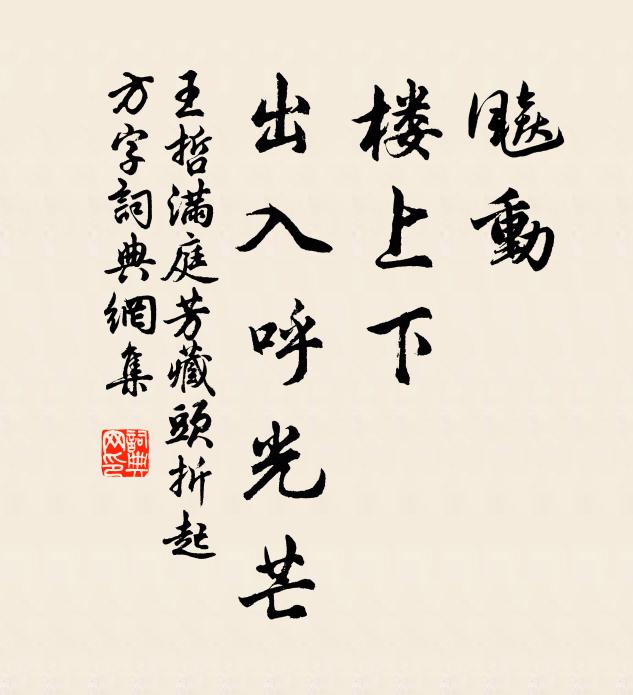 飈動
楼上下
出入呼光芒
王哲滿庭芳藏頭折起
方字詞典網集
詞典
网印